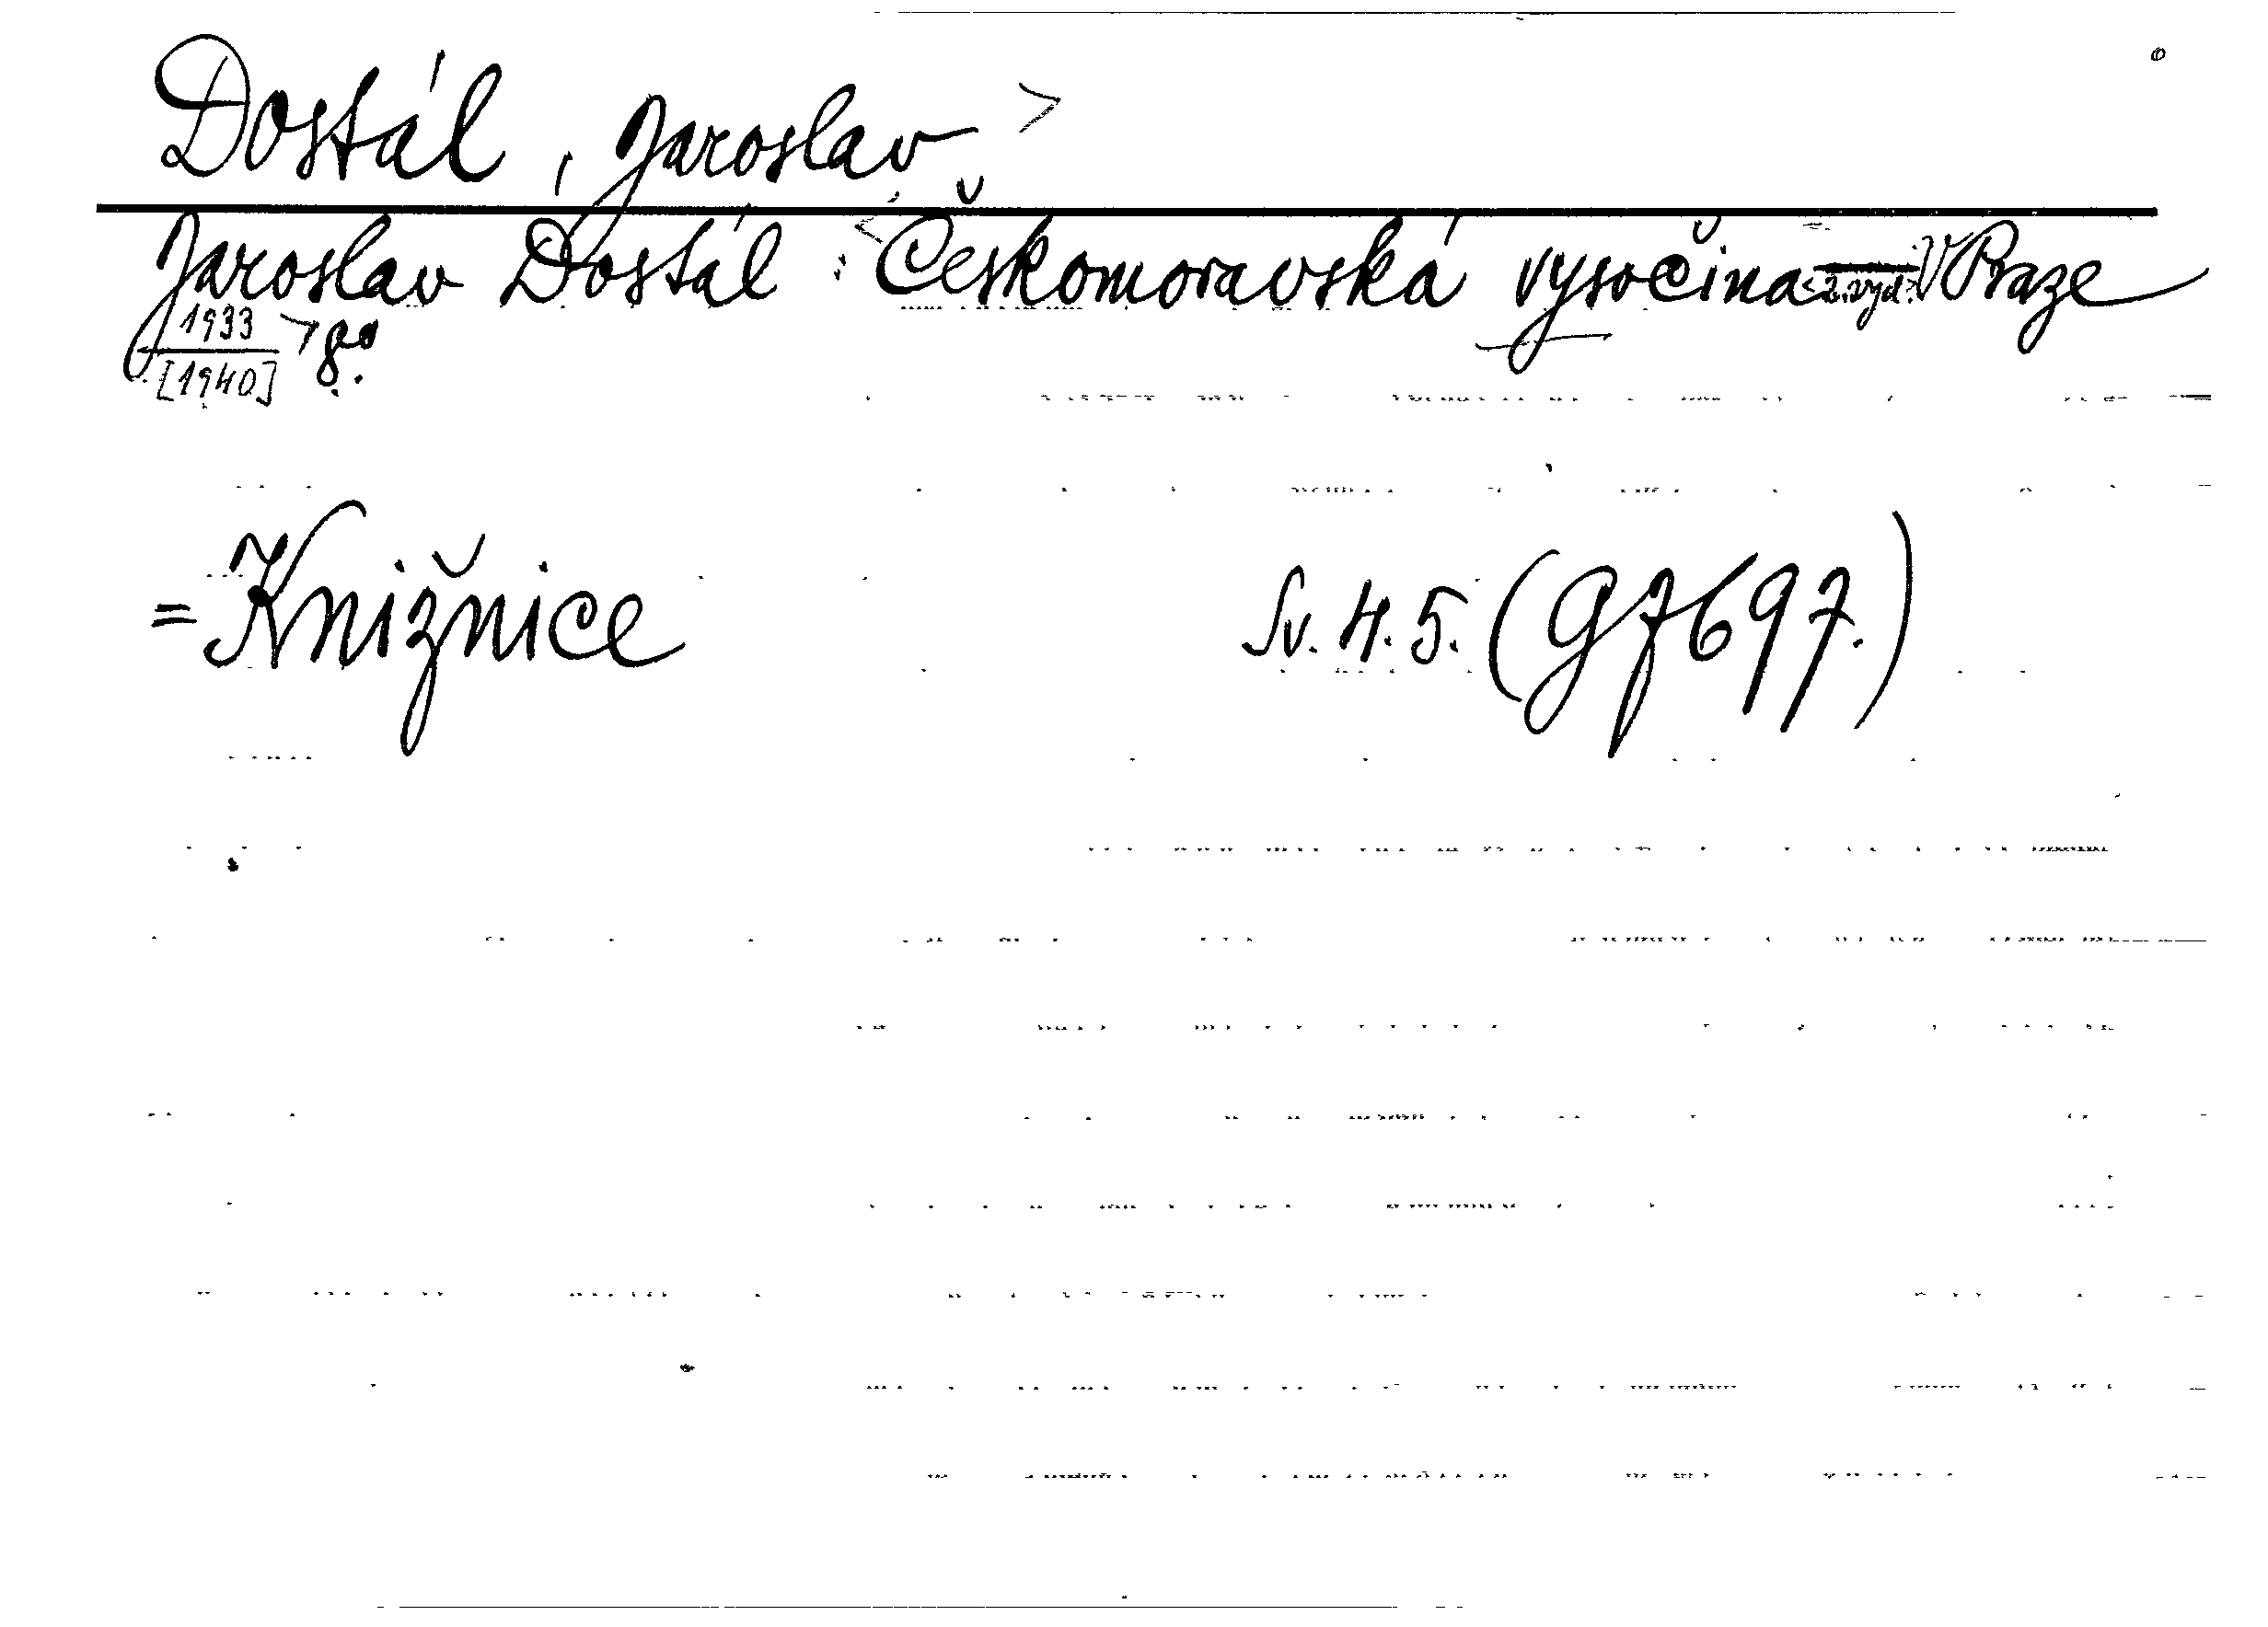 Dostál, Jaroslav
Jaroslav Dostál: Českomoravská vysočina 2. vyd. V Praze
1933 8°.
[1940]
= Knižnice Sv. 4. 5. (G 7697.)